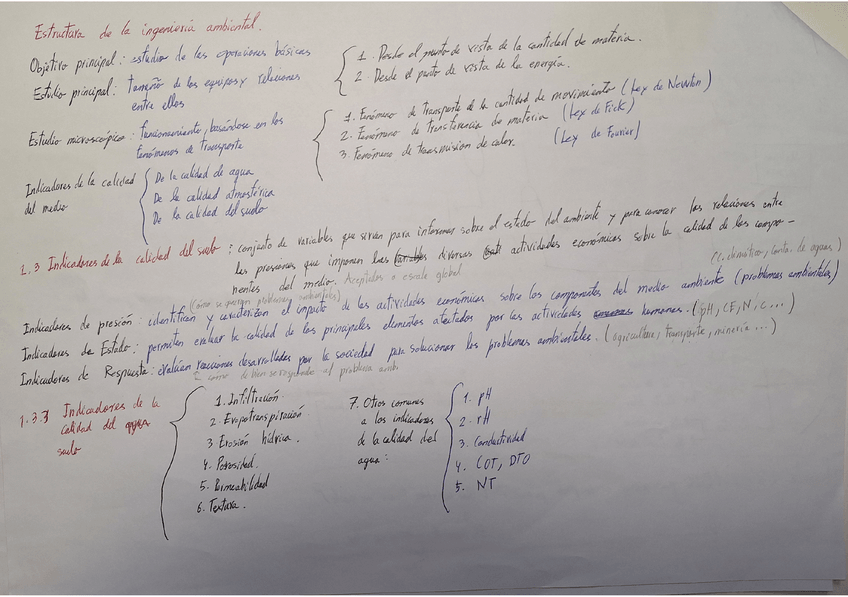 Estructura de la ingeniería ambiental.
Objetivo principal: estudio de las operaciones básicas
1. Desde el punto de vista de la cantidad de materia.
2. Desde el punto de vista de la energía.
Estudio principal: Tamaño de los equipos y relaciones
entre ellos
Estudio microscópico: funcionamiento, basándose en los
fenómenos de transporte
1. Fenómeno de transporte de la cantidad de movimiento (Ley de Newton)
2. Fenómeno de transferencia de materia (Ley de Fick)
3. Fenómeno de transmision de calor. (Ley de Fourier)
Indicadores de la calidad
del medio
De la calidad de agua
De la calidad atmosférica
De la calidad del suelo
1.3 Indicadores de la calidad del suelo: conjunto de variables que sirven para informar sobre el estado del ambiente y para conocer las relaciones entre
las presiones que imponen las diversas actividades económicas sobre la calidad de los compo-
nentes del medio. Aceptados a escala global
(c. climático, conta. de aguas,)
(Cómo se mejoran problemas ambientales)
Indicadores de presión: identifican y caracterizan el impacto de las actividades económicas sobre los componentes del medio ambiente (problemas ambientales)
Indicadores de Estado: permiten evaluar la calidad de los principales elementos afectados por las actividades humanas. (pH, CE, N, C...)
Indicadores de Respuesta: evalúan reacciones desarrolladas por la sociedad para solucionar los problemas ambientales. (agricultura, transporte, minería...)
como se responde al problema amb.
1.3.3 Indicadores de la
calidad del
suelo
1. Infiltración
2. Evapotranspiración
3. Erosión hídrica.
4. Porosidad.
5. Permeabilidad
6. Textura.
7. Otros comunes
a los indicadores
de la calidad del
agua:
1. pH
2. rH
3. Conductividad
4. COT, DTO
5. NT